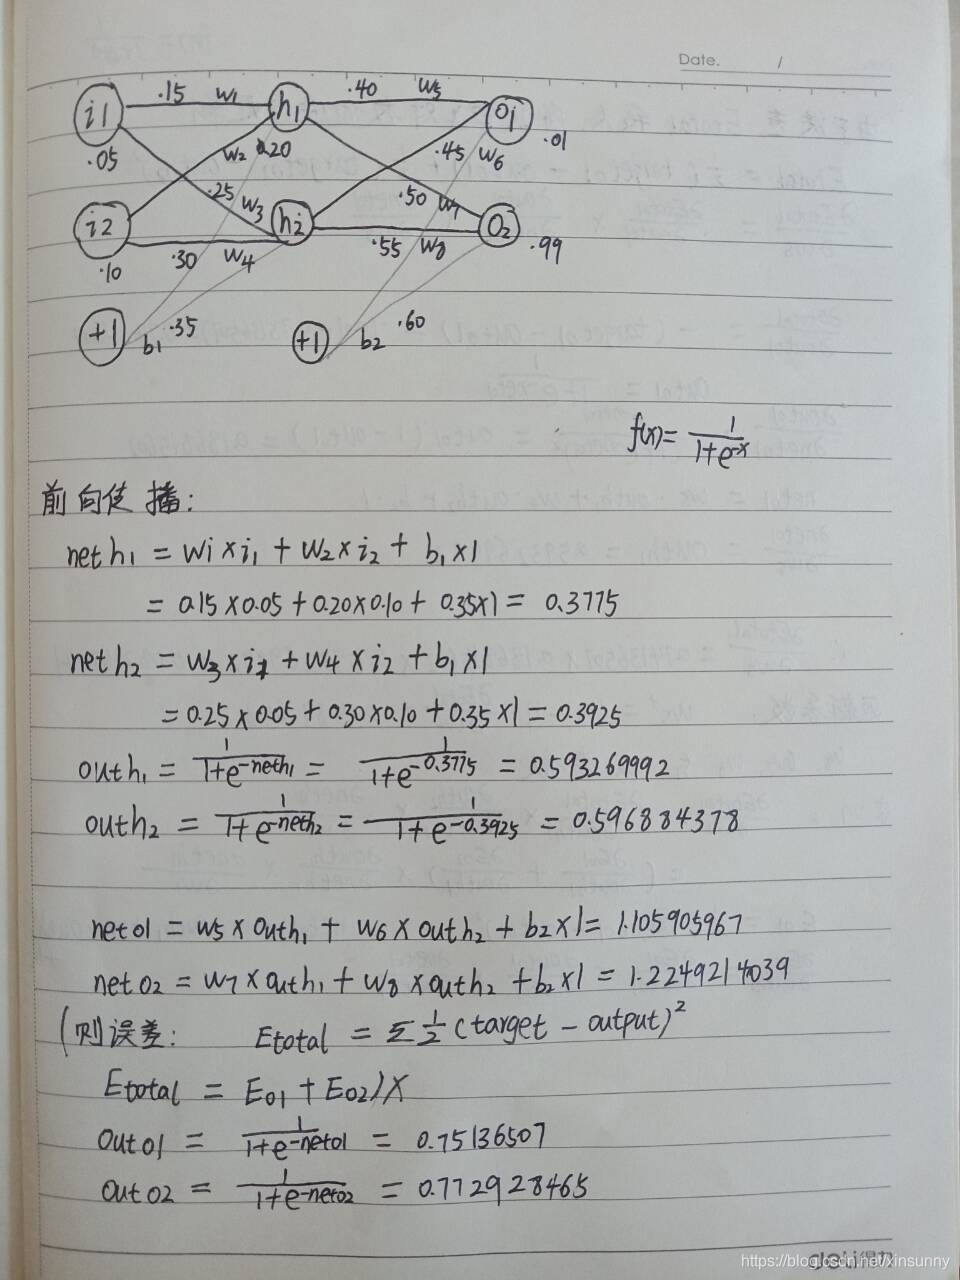 Date. /
i1 .15 w1 h1 .40 w5 o1
.05 w2 0.20 .45 w6 .01
.25 w3 .50 w7
i2 h2 o2
.10 .30 w4 .55 w8 .99
+1 b1 .35 +1 b2 .60
f(x) = 1/(1+e^-x)
前向传播:
net h₁ = w1 × i₁ + w₂ × i₂ + b₁ × 1
= 0.15 × 0.05 + 0.20 × 0.10 + 0.35 × 1 = 0.3775
net h₂ = w₃ × i₁ + w₄ × i₂ + b₁ × 1
= 0.25 × 0.05 + 0.30 × 0.10 + 0.35 × 1 = 0.3925
out h₁ = 1/(1+e^-net h₁) = 1/(1+e^-0.3775) = 0.593269992
out h₂ = 1/(1+e^-net h₂) = 1/(1+e^-0.3925) = 0.596884378
net o1 = w5 × out h₁ + w6 × out h₂ + b₂ × 1 = 1.105905967
net o2 = w7 × out h₁ + w8 × out h₂ + b₂ × 1 = 1.2249214039
(则误差: Etotal = Σ ½ (target - output)²
Etotal = Eo1 + Eo2) X
Out o1 = 1/(1+e^-net o1) = 0.75136507
Out o2 = 1/(1+e^-net o2) = 0.772928465
deli 得力
https://blog.csdn.net/xinsunny